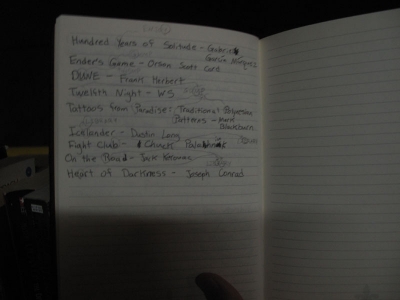 Hundred Years of Solitude - Gabriel
García Márquez
Ender's Game - Orson Scott Card
DUNE - Frank Herbert
Twelfth Night - WS
Tattoos from Paradise: Traditional Polynesian
Patterns - Mark
Blackburn
Icelander - Dustin Long
Fight Club - Chuck
On the Road - Jack Kerouac
Heart of Darkness - Joseph Conrad